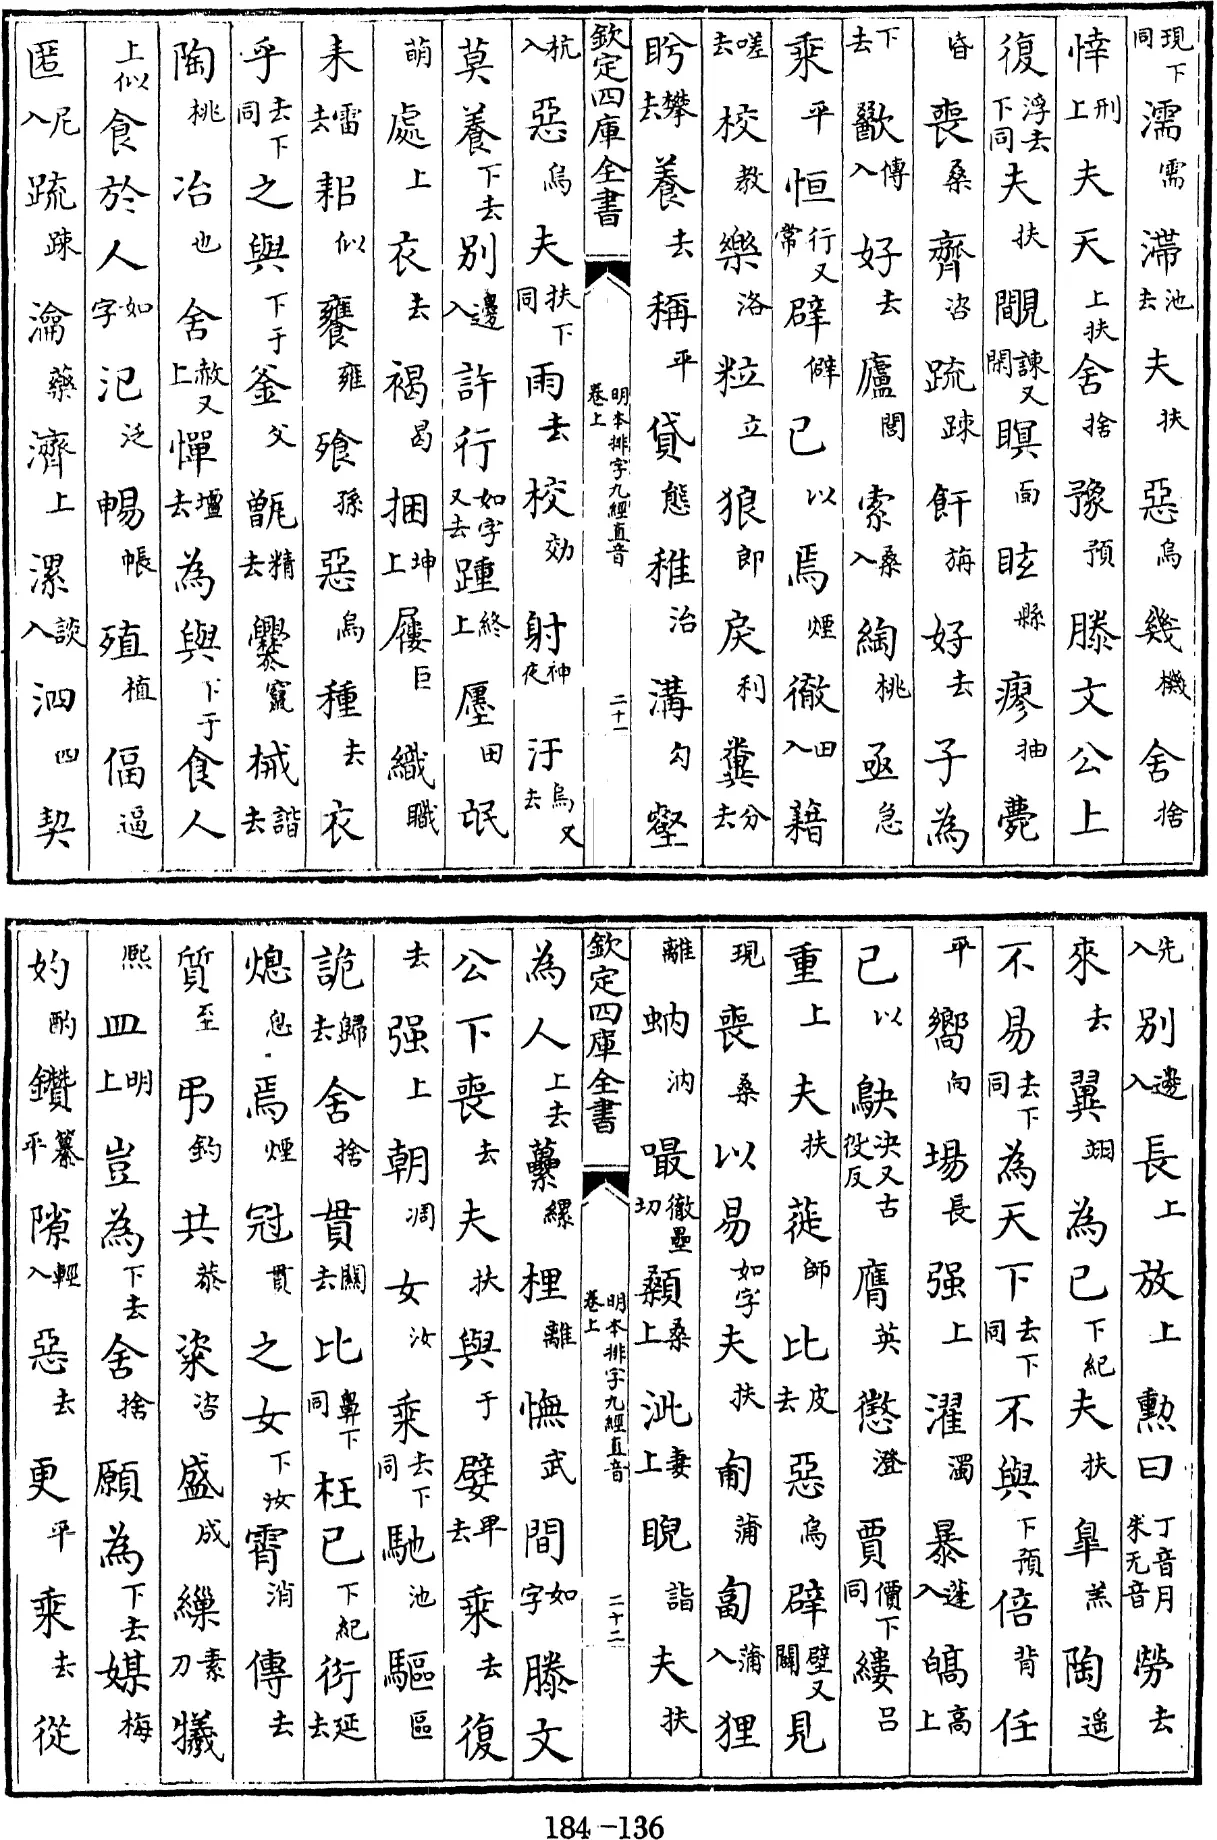 現下同濡需滯池去夫扶惡烏幾機舍捨
悻刑上夫天上扶舍捨豫預滕文公上
復浮去下同夫扶覸諫又閑瞑面眩縣瘳抽薨
昏喪桑齊咨疏踈飦旃好去子為
下去歠傳入好去廬閭索桑入綯桃亟急
乘平恒行又常辟僻已以焉煙徹田入藉
嗟去校教樂洛粒立狼郎戾利糞分去
盻攀去養去稱平貸態稚治溝勾壑
欽定四庫全書 明本排字九經直音 卷上 二十一
杭入惡烏夫扶下同雨去校効射神夜汙烏又去
莫養下去別邊入許行如字又去踵終上廛田氓
萌處上衣去褐曷捆坤上屨巨織職
耒雷去耜似饔雍飧孫惡烏種去衣
乎去下同之與下于釜父甑精去爨竄械諧去
陶桃冶也舍赦又上憚壇去為與下于食人
上似食於人如字氾泛暢帳殖植偪逼
匿尼入疏踈瀹藥濟上漯談入泗四契
先入別邊入長上放上勲曰丁音月朱无音勞去
來去翼翊為已下紀夫扶臯羔陶遥
不易去下同為天下去下同不與下預倍背任
平嚮向場長强上濯濁暴蓬入皜高上
已以鴃決又古役反膺英懲澄賈價下同縷呂
重上夫扶蓰師比皮去惡烏辟壁又闢見
現喪桑以易如字夫扶匍蒲匐蒲入狸
離蚋汭嘬徹壘切顙桑上泚妻上睨詣夫扶
欽定四庫全書 明本排字九經直音 卷上 二十二
為人上去虆縲梩離憮武間如字滕文
公下喪去夫扶與于嬖畀去乘去復
去强上朝凋女汝乘去下同馳池驅區
詭歸去舍捨貫關去比鼻下同枉已下紀衍延去
熄息焉煙冠貫之女下汝霄消傳去
質至弔釣共恭粢咨盛成繅素刀犧
熙皿明上豈為下去舍捨願為下去媒梅
妁酌鑽纂平隙輕入惡去更平乘去從
184-136